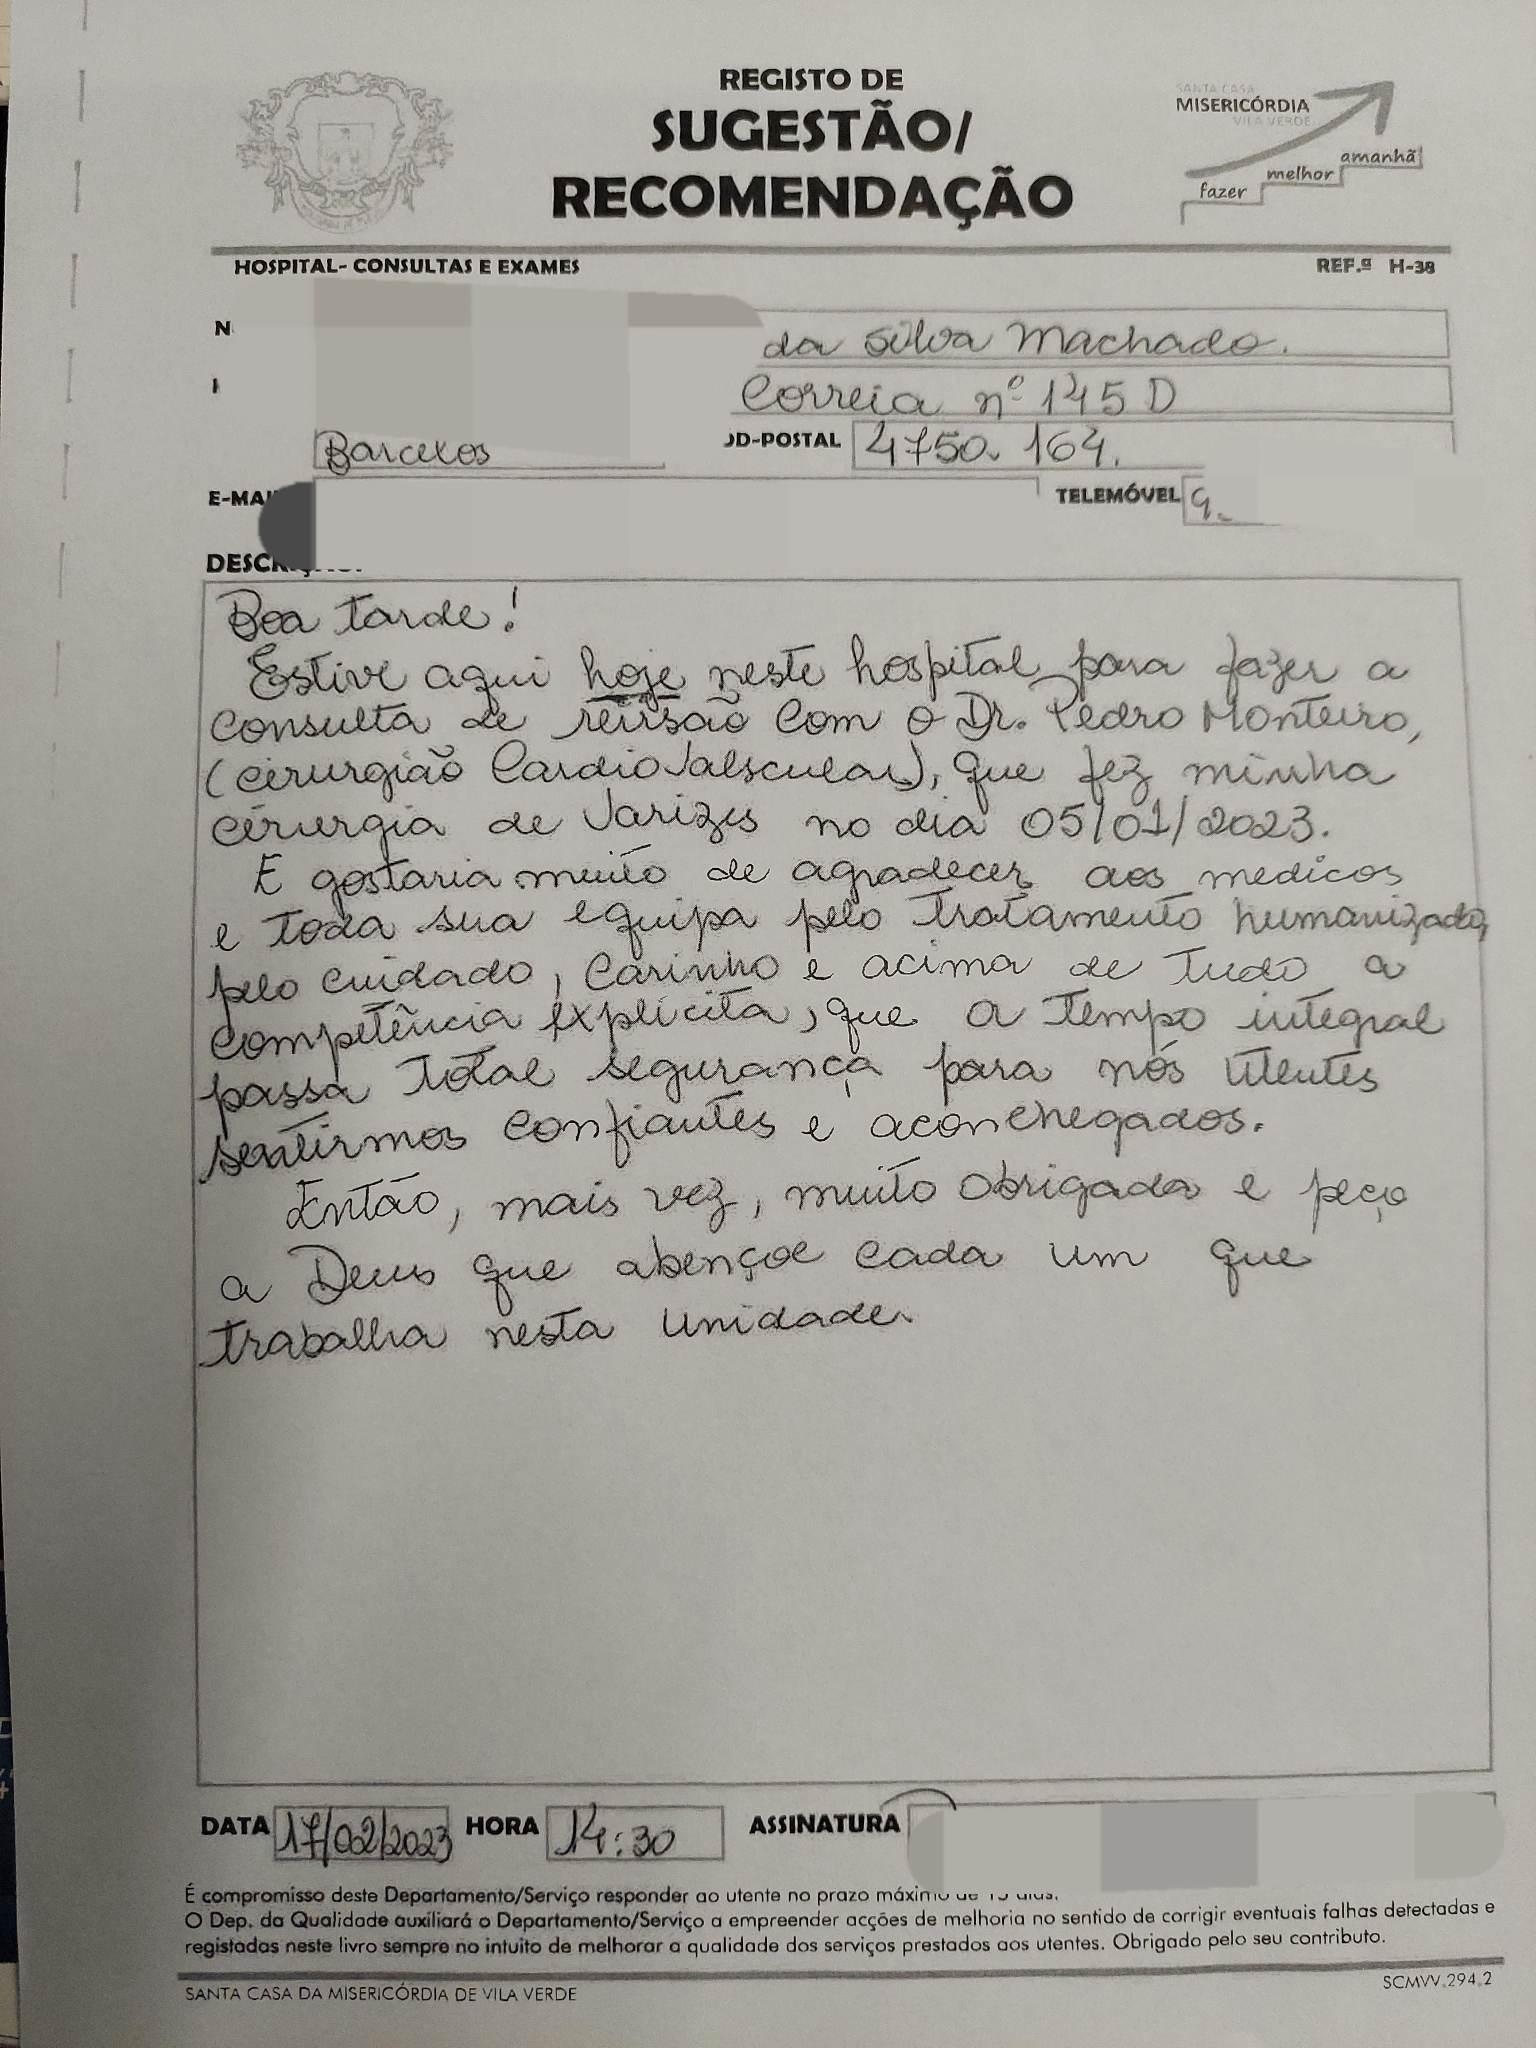 REGISTO DE
SUGESTÃO/
RECOMENDAÇÃO
SANTA CASA
MISERICÓRDIA
VILA VERDE
fazer melhor amanhã
HOSPITAL- CONSULTAS E EXAMES REF.ª H-38
da Silva Machado.
Correia nº 145 D
Barcelos OD-POSTAL 4750. 164.
E-MAI TELEMÓVEL 9
Boa tarde!
Estive aqui hoje neste hospital para fazer a
consulta de revisão com o Dr. Pedro Monteiro,
(cirurgião CardioValscular), que fez minha
cirurgia de Varizes no dia 05/01/2023.
E gostaria muito de agradecer aos medicos
e toda sua equipa pelo tratamento humanizado,
pelo cuidado, carinho e acima de tudo a
competência explicita, que a tempo integral
passa total segurança para nós utentes
sentirmos confiantes e aconchegados.
Então, mais vez, muito obrigada e peço
a Deus que abençoe cada um que
trabalha nesta unidade.
DATA 17/02/2023 HORA 14:30 ASSINATURA
É compromisso deste Departamento/Serviço responder ao utente no prazo máximo de 15 dias.
O Dep. da Qualidade auxiliará o Departamento/Serviço a empreender acções de melhoria no sentido de corrigir eventuais falhas detectadas e
registadas neste livro sempre no intuito de melhorar a qualidade dos serviços prestados aos utentes. Obrigado pelo seu contributo.
SANTA CASA DA MISERICÓRDIA DE VILA VERDE SCMVV.294.2